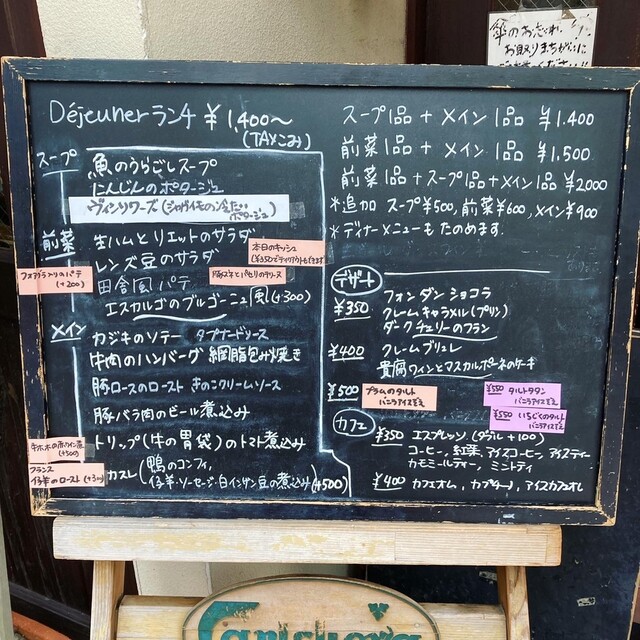 傘のお忘れ
お取りまちがいに
Déjeuner ランチ ¥1,400〜
(TAXこみ)
スープ
魚のうらごしスープ
にんじんのポタージュ
ヴィシソワーズ(ジャガイモの冷たいポタージュ)
前菜
生ハムとリエットのサラダ
本日のキッシュ
レンズ豆のサラダ
フォアグラ入りのパテ
(+200)
田舎風パテ
エスカルゴのブルゴーニュ風(+300)
メイン
カジキのソテー タプナードソース
牛肉のハンバーグ 網脂包み焼き
豚ロースのロースト きのこクリームソース
豚バラ肉のビール煮込み
牛ホホの赤ワイン煮
(+500)
トリップ(牛の胃袋)のトマト煮込み
フランス
仔羊のロースト(+300)
カスレ(鴨のコンフィ,
仔羊・ソーセージ・白インゲン豆の煮込み)(+500)
スープ1品 + メイン1品 ¥1.400
前菜1品 + メイン1品 ¥1,500
前菜1品+スープ1品+メイン1品 ¥2000
*追加 スープ¥500, 前菜¥600, メイン¥900
*ディナーメニューもたのめます
デザート
¥350
フォンダンショコラ
クレームキャラメル(プリン)
ダークチェリーのフラン
¥400
クレームブリュレ
貴腐ワインとマスカルポーネのケーキ
¥500
プラムのタルト
バニラアイス添え
¥550 タルトタタン
バニラアイス添え
¥550 いちじくのタルト
バニラアイス添え
カフェ
¥350 エスプレッソ(ダブル+100)
コーヒー, 紅茶, アイスコーヒー, アイスティー
カモミールティー, ミントティ
¥400 カフェオレ, カプチーノ, アイスカフェオレ